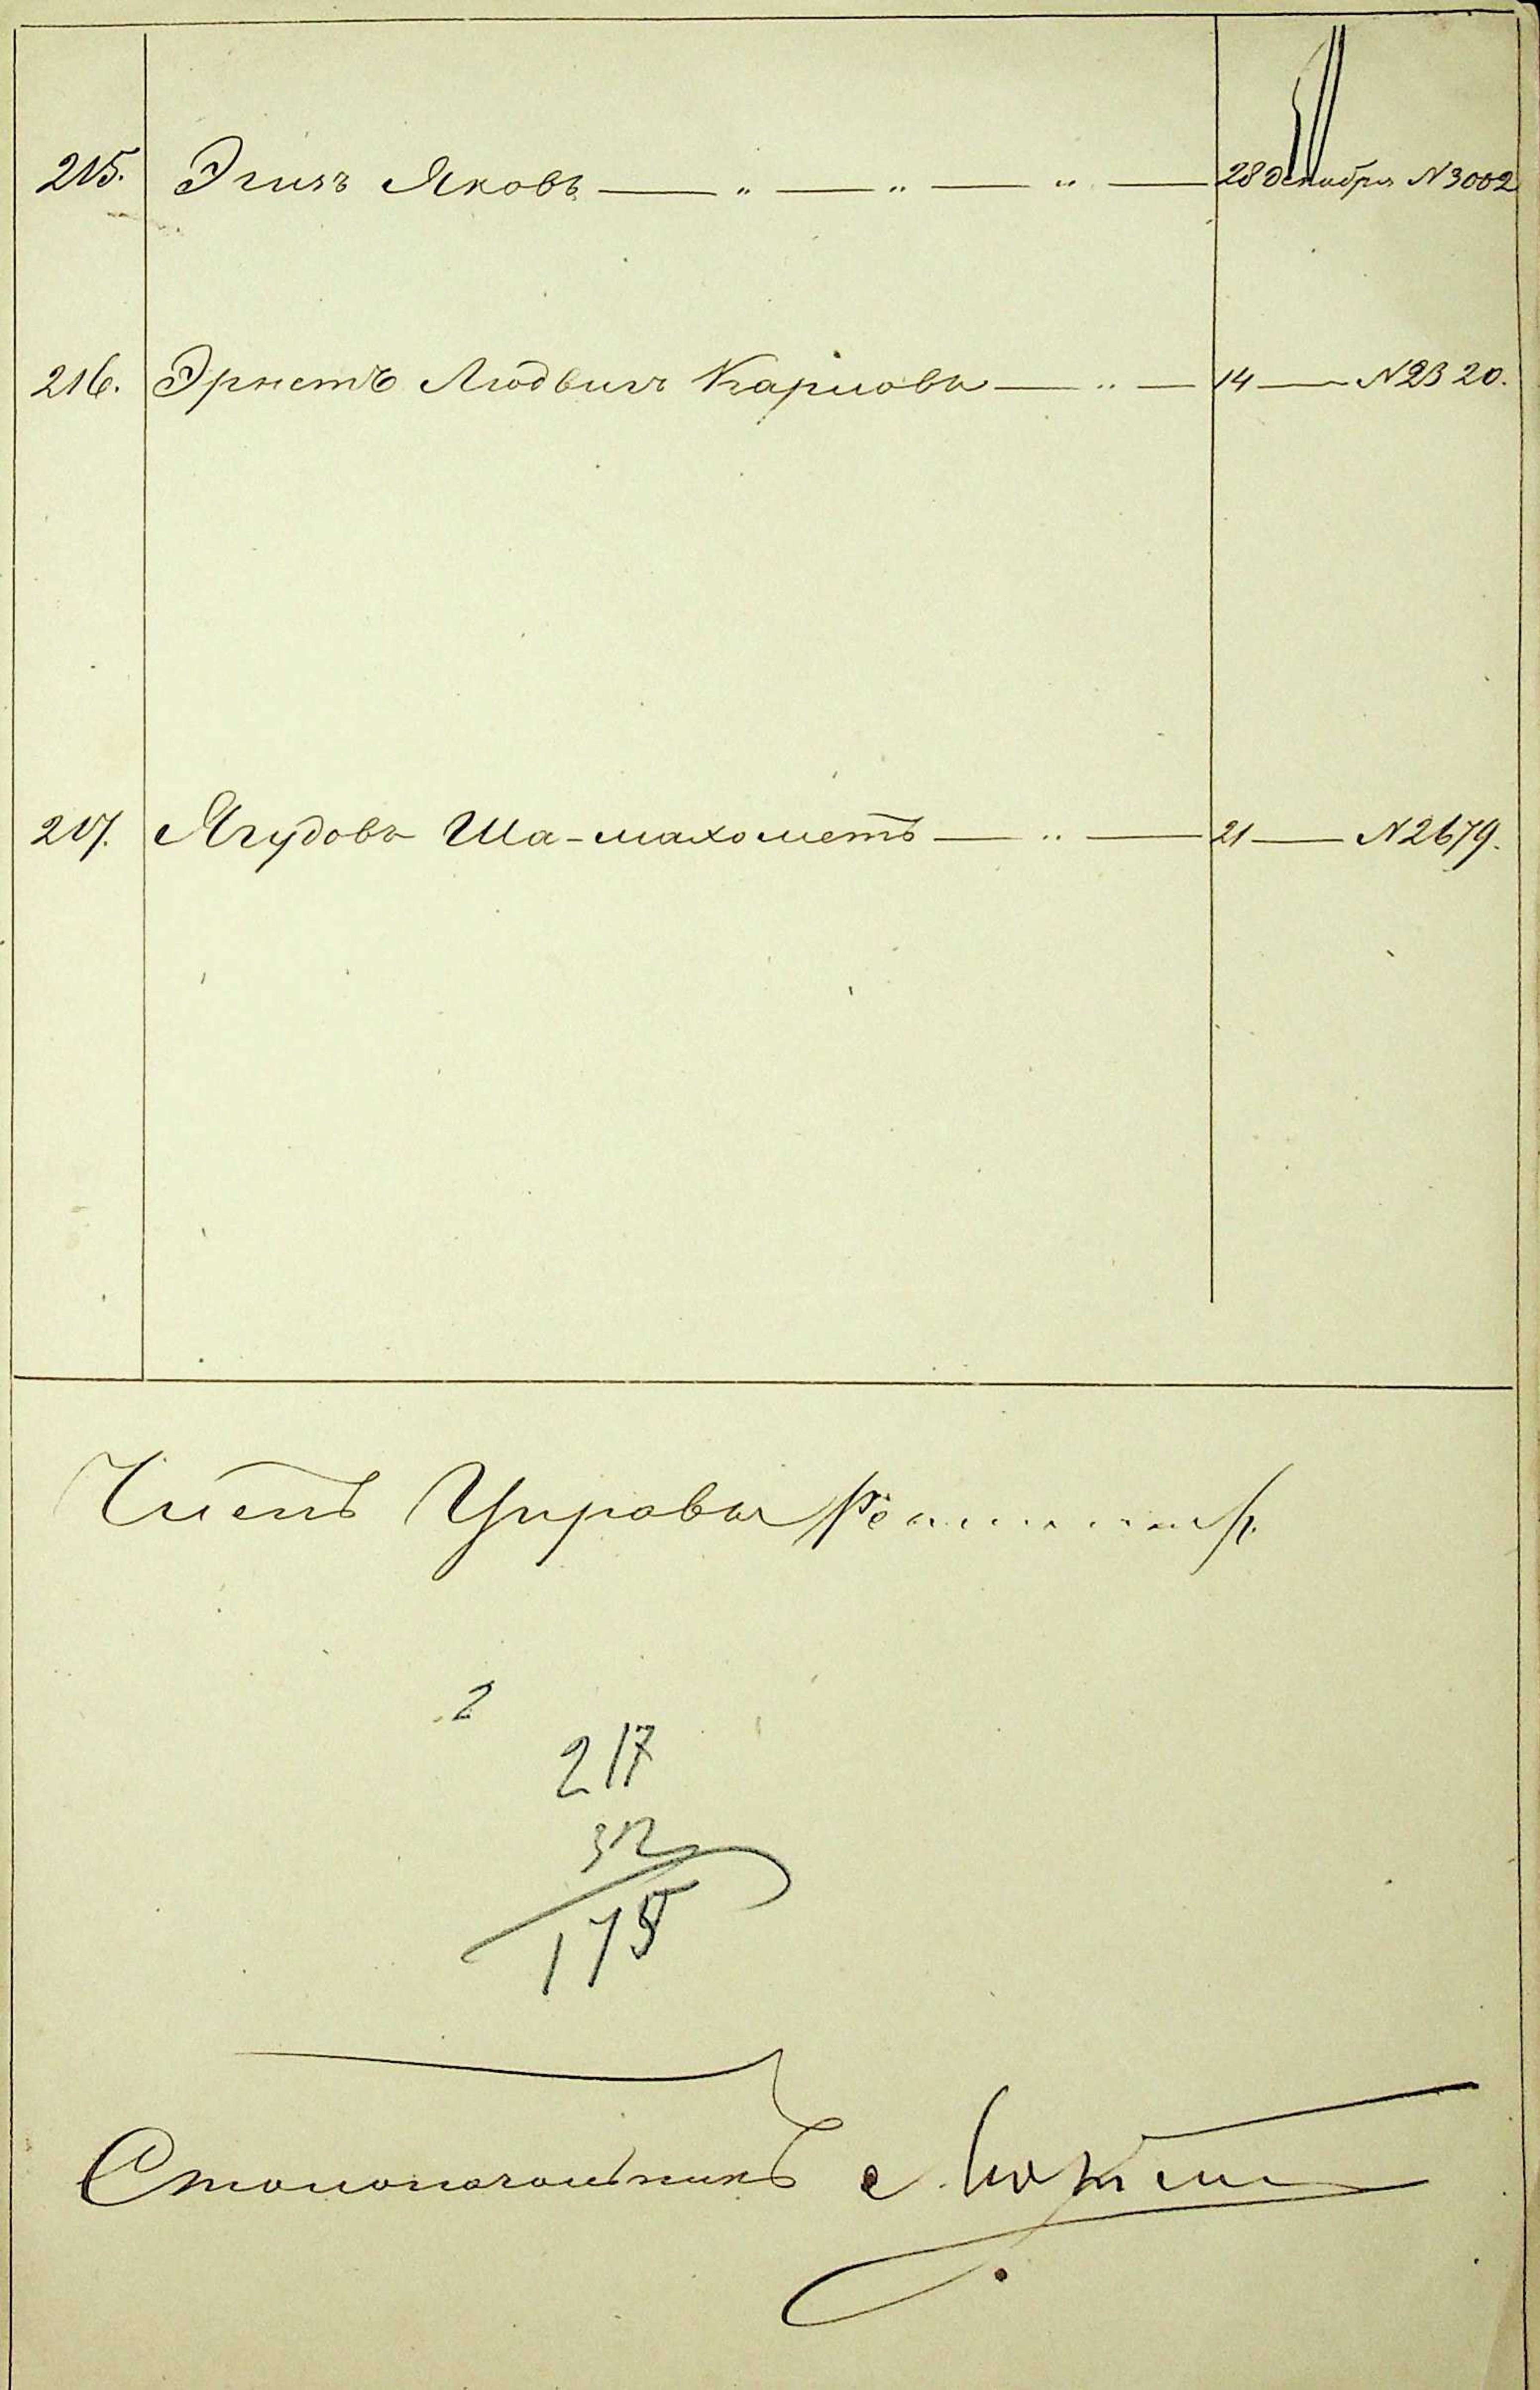 215. Эгизъ Яковъ — „ — „ — „ — 28 декабря N 3002
216. Эрнстъ Людвигъ Карловъ — „ — 14 — N 2320.
217. Ягудовъ Ша-махометъ — „ — 21 — N 2679.
Членъ Управы
2
217
32
175
Столоначальникъ